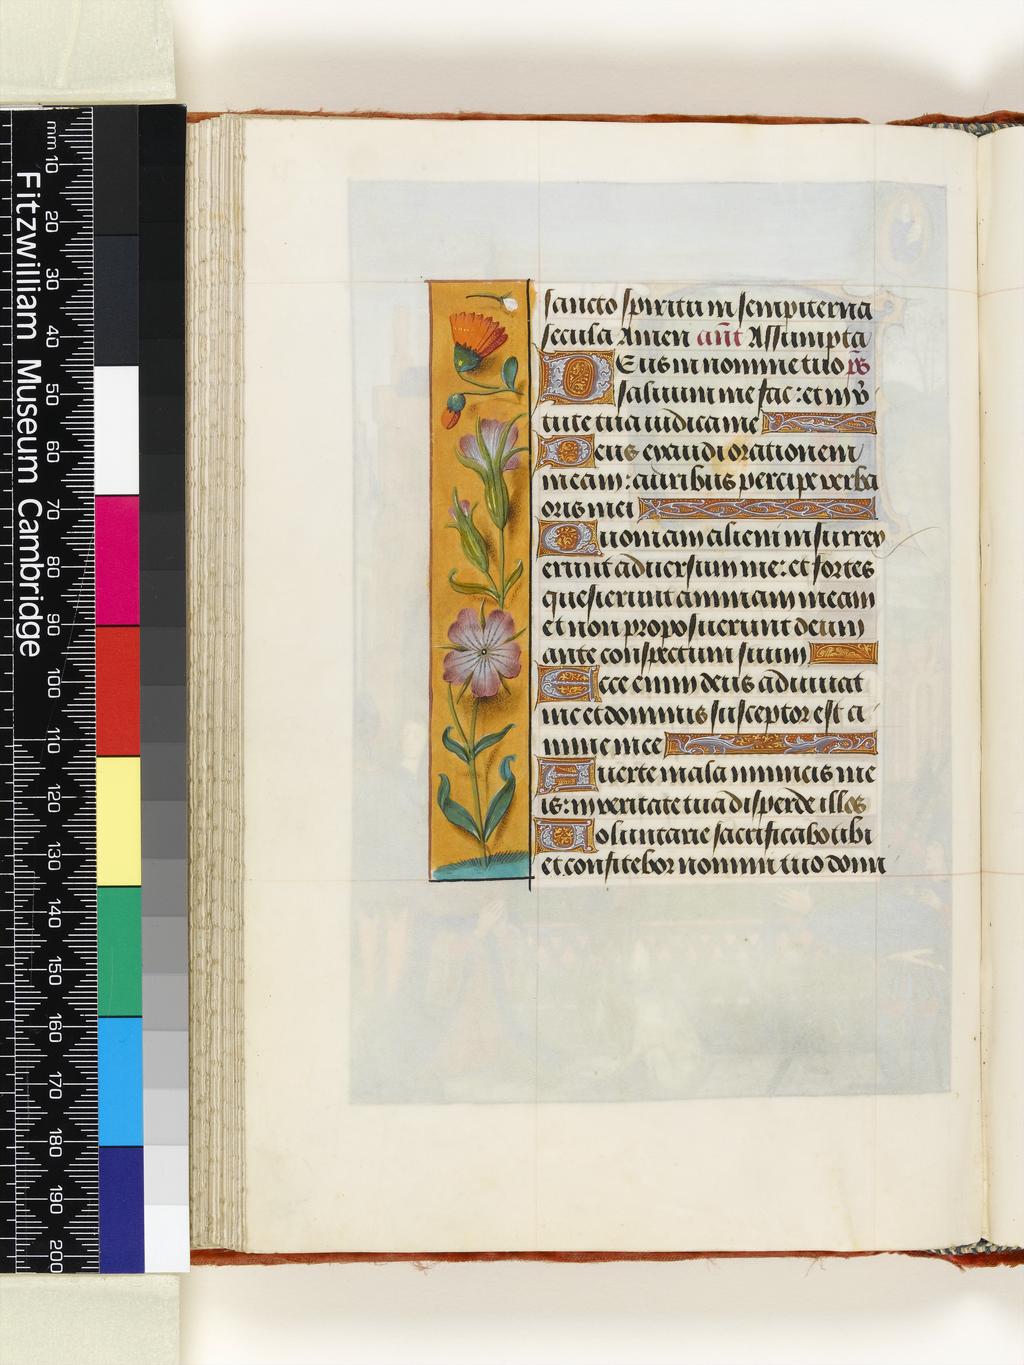 sancto spiritu in sempiterna
secula Amen añt Assumpta
Deus in nomine tuo p̄s
saluum me fac: et in v̇
tute tua iudica me
Deus exaudi orationem
meam: auribus percipe verba
oris mei
Quoniam alieni insurrex
erunt aduersum me: et fortes
quesierunt animam meam
et non proposuerunt deum
ante conspectum suum
Ecce enim deus adiuuat
me et dominus susceptor est a
nime mee
Auerte mala inimicis me
is: in veritate tua disperde illos
Voluntarie sacrificabo tibi
et confitebor nomini tuo domi
Fitzwilliam Museum Cambridge
mm 10 20 30 40 50 60 70 80 90 100 110 120 130 140 150 160 170 180 190 200